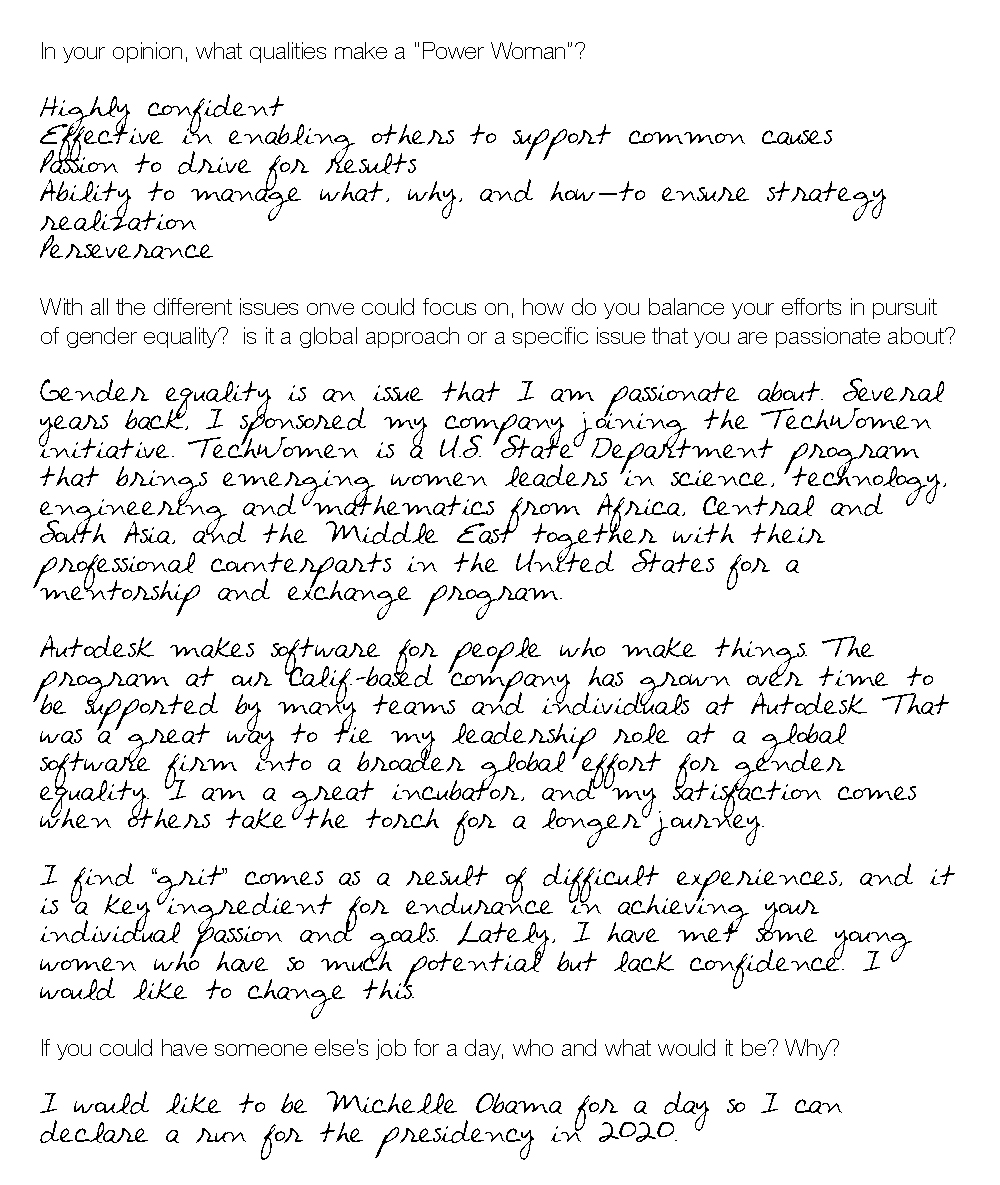 In your opinion, what qualities make a "Power Woman"?
Highly confident
Effective in enabling others to support common causes
Passion to drive for Results
Ability to manage what, why, and how—to ensure strategy
realization
Perseverance
With all the different issues onve could focus on, how do you balance your efforts in pursuit
of gender equality?  is it a global approach or a specific issue that you are passionate about?
Gender equality is an issue that I am passionate about. Several
years back, I sponsored my company joining the TechWomen
initiative. TechWomen is a U.S. State Department program
that brings emerging women leaders in science, technology,
engineering and mathematics from Africa, Central and
South Asia, and the Middle East together with their
professional counterparts in the United States for a
mentorship and exchange program.
Autodesk makes software for people who make things. The
program at our Calif.-based company has grown over time to
be supported by many teams and individuals at Autodesk. That
was a great way to tie my leadership role at a global
software firm into a broader global effort for gender
equality. I am a great incubator, and my satisfaction comes
when others take the torch for a longer journey.
I find "grit" comes as a result of difficult experiences, and it
is a key ingredient for endurance in achieving your
individual passion and goals. Lately, I have met some young
women who have so much potential but lack confidence. I
would like to change this.
If you could have someone else's job for a day, who and what would it be? Why?
I would like to be Michelle Obama for a day so I can
declare a run for the presidency in 2020.